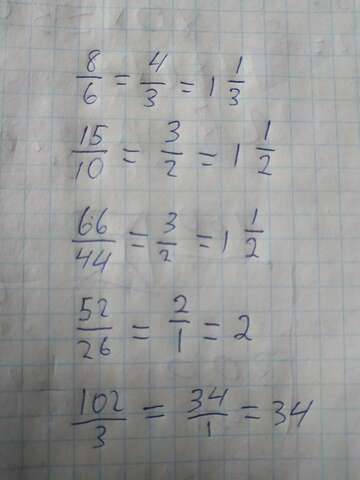 8/6 = 4/3 = 1 1/3
15/10 = 3/2 = 1 1/2
66/44 = 3/2 = 1 1/2
52/26 = 2/1 = 2
102/3 = 34/1 = 34